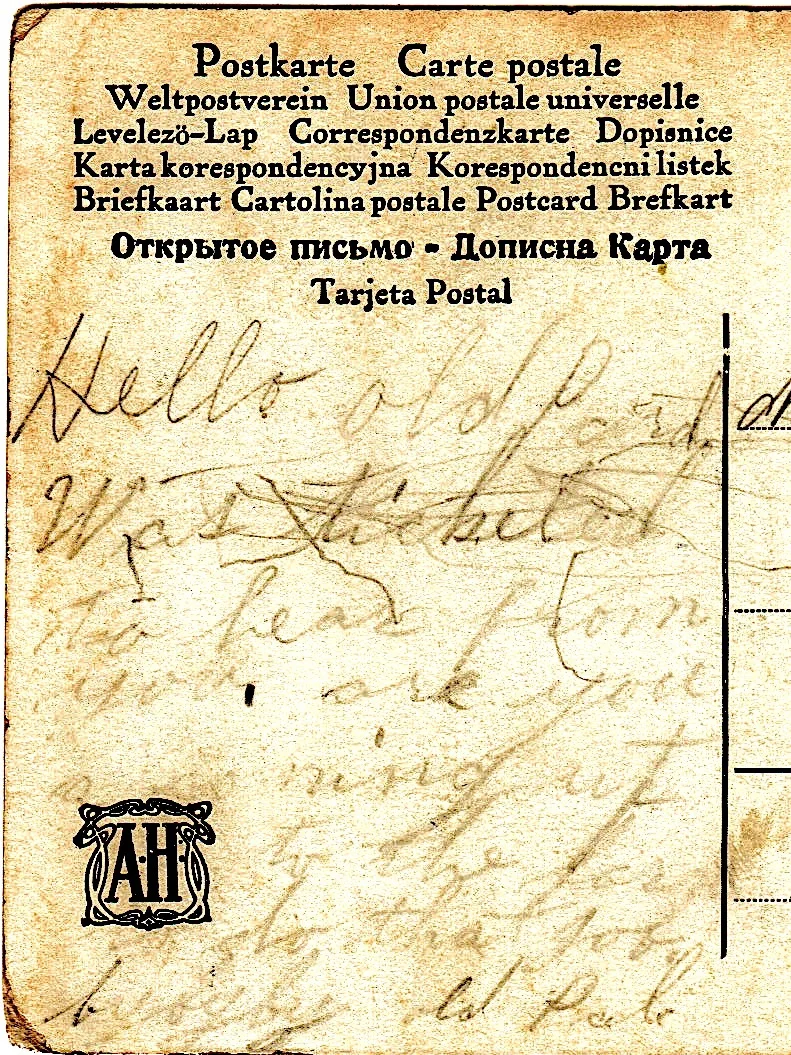 Postkarte Carte postale
Weltpostverein Union postale universelle
Levelezö-Lap Correspondenzkarte Dopisnice
Karta korespondencyjna Korespondencni listek
Briefkaart Cartolina postale Postcard Brefkart
Открытое письмо - Дописна Карта
Tarjeta Postal
Hello old Pard.
Was tickeled
to hear from
you. are you
up
to
A·H·
do tha job
old Pal